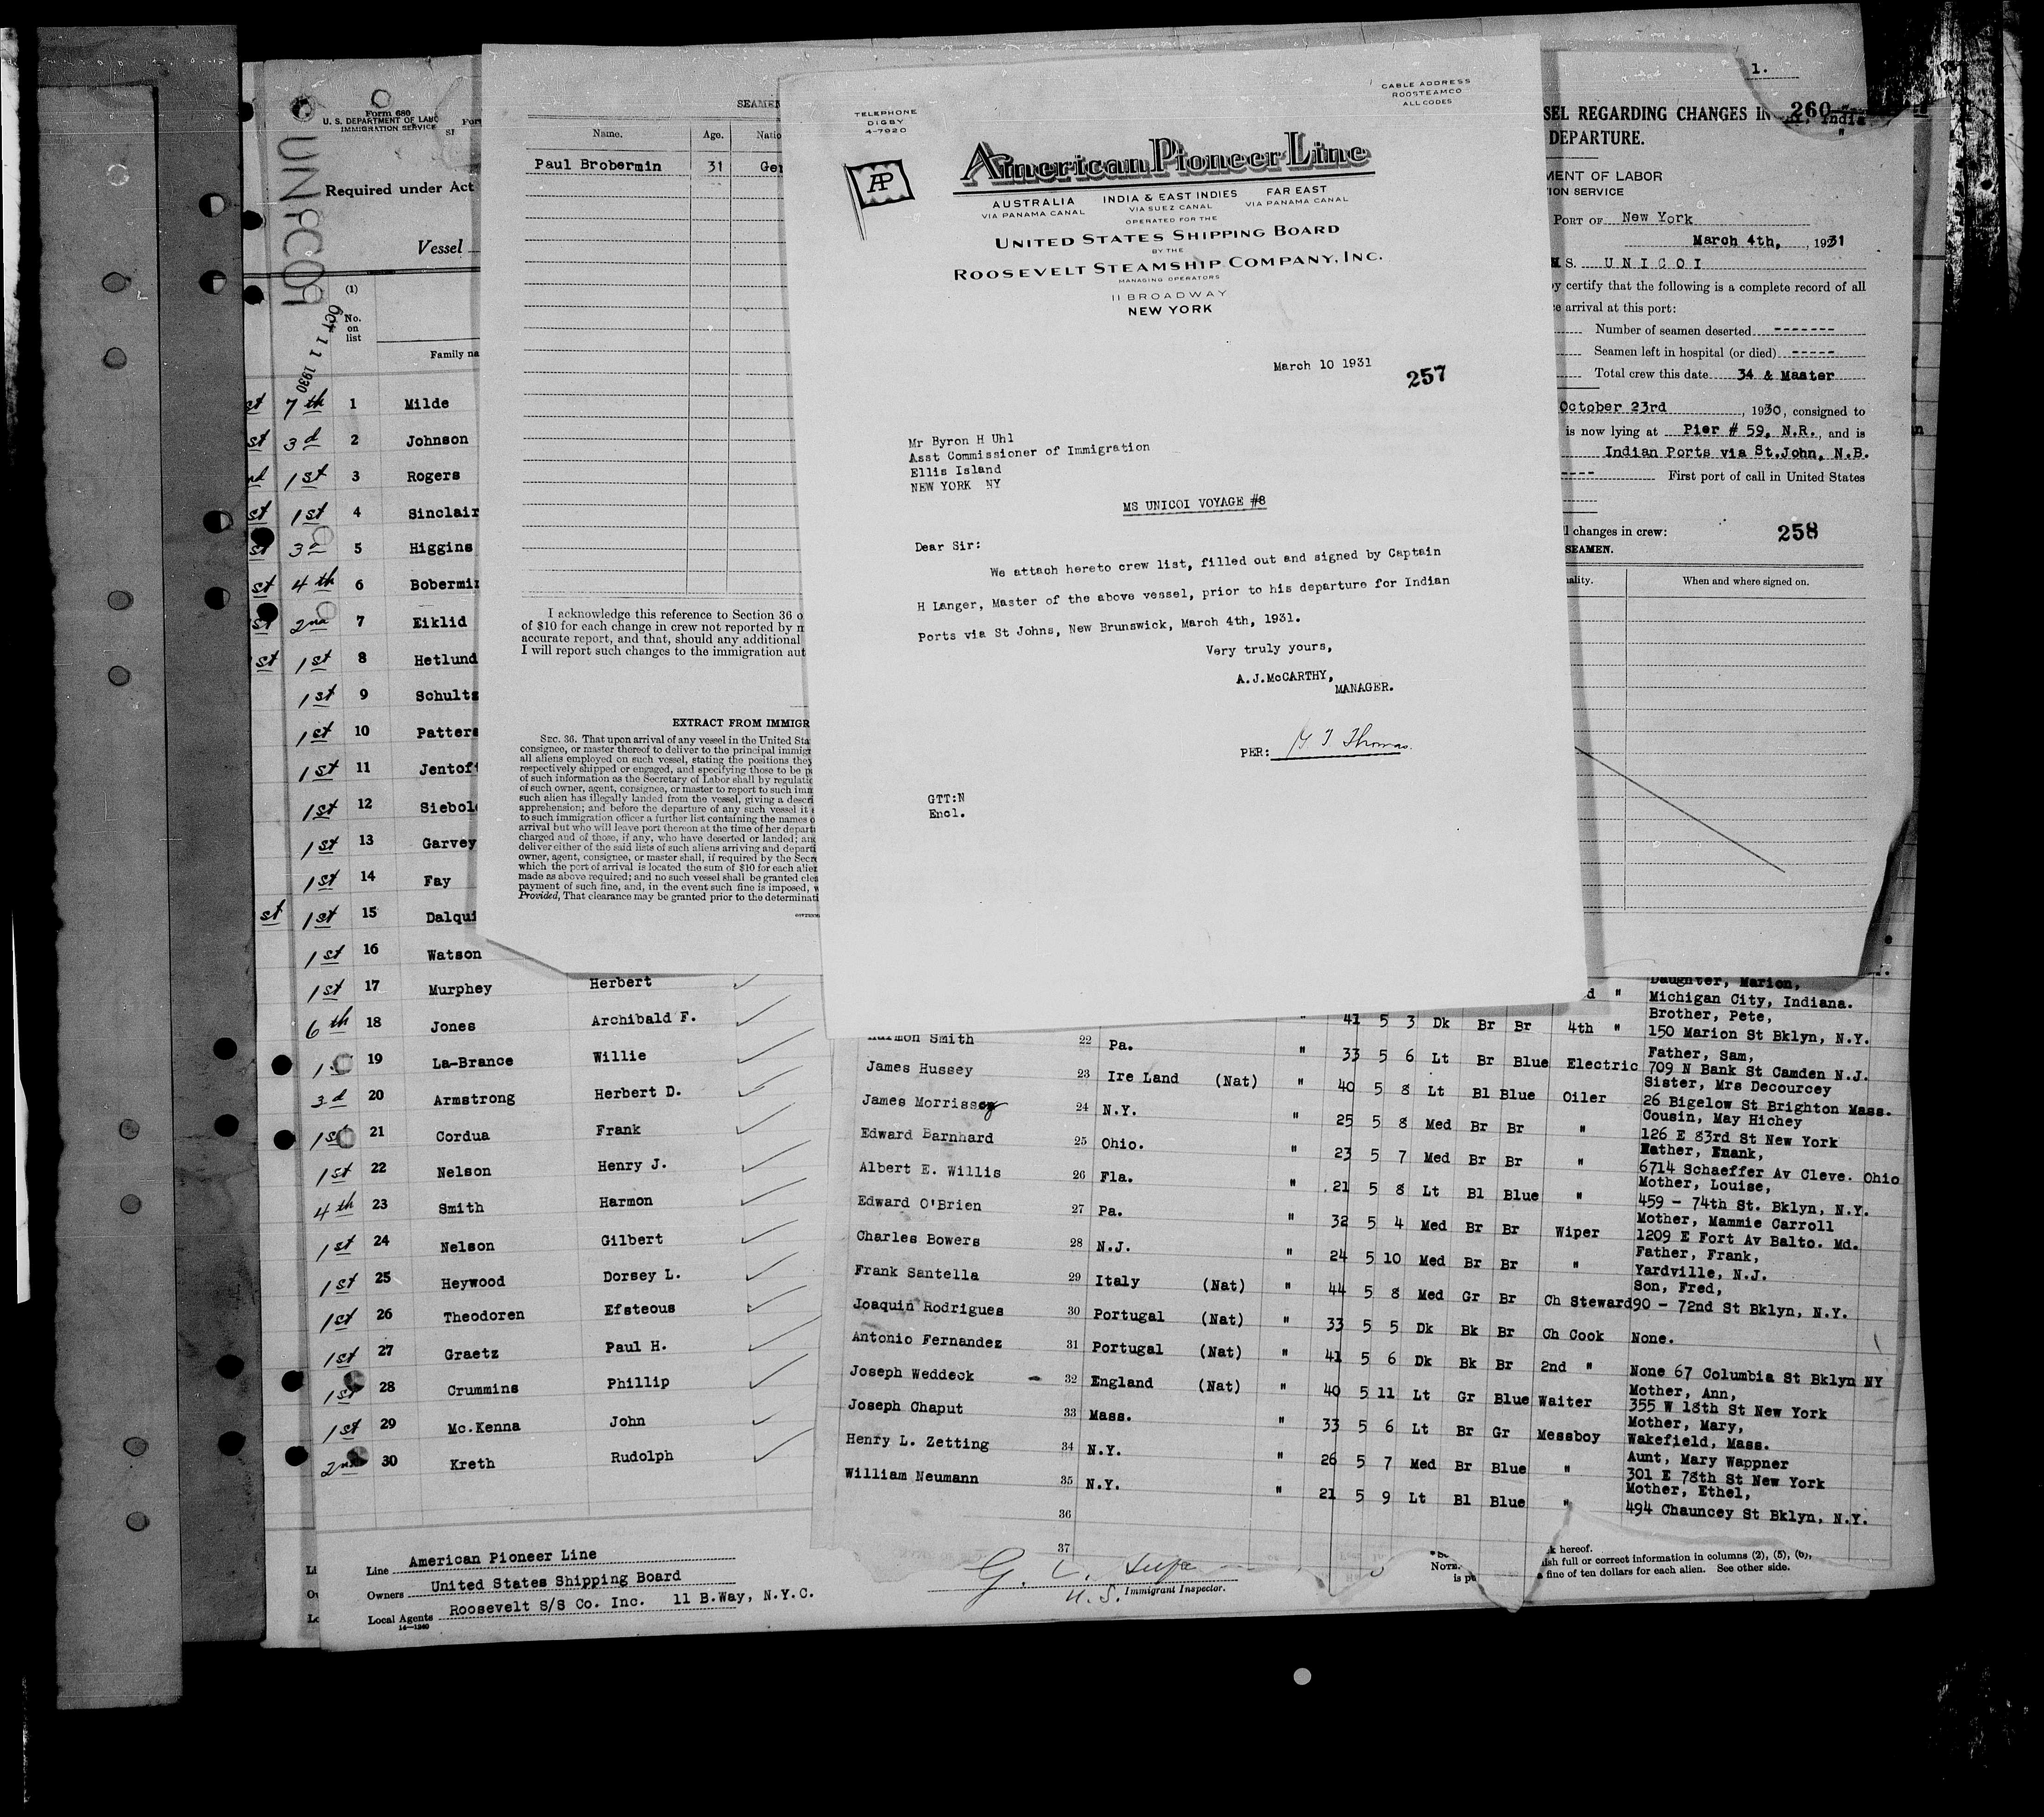 TELEPHONE
DIGBY
4-7920
CABLE ADDRESS
ROOSTEAMCO
ALL CODES
AP
American Pioneer Line
AUSTRALIA INDIA & EAST INDIES FAR EAST
VIA PANAMA CANAL VIA SUEZ CANAL VIA PANAMA CANAL
OPERATED FOR THE
UNITED STATES SHIPPING BOARD
BY THE
ROOSEVELT STEAMSHIP COMPANY, INC.
MANAGING OPERATORS
11 BROADWAY
NEW YORK
March 10 1931
257
Mr Byron H Uhl
Asst Commissioner of Immigration
Ellis Island
NEW YORK NY
MS UNICOI VOYAGE #8
Dear Sir:
We attach hereto crew list, filled out and signed by Captain
H Langer, Master of the above vessel, prior to his departure for Indian
Ports via St Johns, New Brunswick, March 4th, 1931.
Very truly yours,
A.J.McCARTHY,
MANAGER.
PER: G T Thomas.
GTT:N
Encl.
Form 680
U. S. DEPARTMENT OF LABO
IMMIGRATION SERVICE
UNICOI
OCT 11 1930
Required under Act
Vessel
(1)
No.
on
list
Family na
st 7th 1 Milde
st 3d 2 Johnson
nd 1st 3 Rogers
st 1st 4 Sinclair
st 3d 5 Higgins
st 4th 6 Bobermi
st 2nd 7 Eiklid
st 1st 8 Hetlund
1st 9 Schults
1st 10 Patters
1st 11 Jentof
1st 12 Siebol
1st 13 Garvey
1st 14 Fay
st 1st 15 Dalqui
1st 16 Watson
1st 17 Murphey Herbert
6th 18 Jones Archibald F.
19 La-Brance Willie
3d 20 Armstrong Herbert D.
1st 21 Cordua Frank
1st 22 Nelson Henry J.
4th 23 Smith Harmon
1st 24 Nelson Gilbert
1st 25 Heywood Dorsey L.
1st 26 Theodoren Efsteous
1st 27 Graetz Paul H.
1st 28 Crummins Phillip
1st 29 Mc.Kenna John
2nd 30 Kreth Rudolph
Line American Pioneer Line
Owners United States Shipping Board
Local Agents Roosevelt S/S Co. Inc. 11 B.Way, N.Y.C.
14-1240
SEAMEN
Name. Age. Natio
Paul Brobermin 31 Ger
I acknowledge this reference to Section 36 o
of $10 for each change in crew not reported by m
accurate report, and that, should any additional
I will report such changes to the immigration aut
EXTRACT FROM IMMIGR
SEC. 36. That upon arrival of any vessel in the United Sta
consignee, or master thereof to deliver to the principal immigr
all aliens employed on such vessel, stating the positions they
respectively shipped or engaged, and specifying those to be p
of such information as the Secretary of Labor shall by regulatio
of such owner, agent, consignee, or master to report to such imm
such alien has illegally landed from the vessel, giving a descri
apprehension; and before the departure of any such vessel it s
to such immigration officer a further list containing the names o
arrival but who will leave port thereon at the time of her depart
charged and of those, if any, who have deserted or landed; and
deliver either of the said lists of such aliens arriving and departi
owner, agent, consignee, or master shall, if required by the Secre
which the port of arrival is located the sum of $10 for each alien
made as above required; and no such vessel shall be granted clea
payment of such fine, and, in the event such fine is imposed, w
Provided, That clearance may be granted prior to the determinati
1.
260
India
SEL REGARDING CHANGES IN
DEPARTURE.
MENT OF LABOR
TION SERVICE
PORT OF New York
March 4th, , 1931
MS. UNICOI
by certify that the following is a complete record of all
ce arrival at this port:
Number of seamen deserted -------
Seamen left in hospital (or died) -----
Total crew this date 34 & Master
October 23rd , 1930, consigned to
is now lying at Pier # 59, N.R., and is
Indian Ports via St.John, N.B.
First port of call in United States
l changes in crew:
258
SEAMEN.
ality. When and where signed on.
Daughter, Marion,
d " Michigan City, Indiana.
Brother, Pete,
" 41 5 3 Dk Br Br 4th " 150 Marion St Bklyn, N.Y.
Harmon Smith 22 Pa. " 33 5 6 Lt Br Blue Electric Father, Sam,
709 N Bank St Camden N.J.
James Hussey 23 Ire Land (Nat) " 40 5 8 Lt Bl Blue Oiler Sister, Mrs Decourcey
26 Bigelow St Brighton Mass.
James Morrissey 24 N.Y. " 25 5 8 Med Br Br " Cousin, May Hichey
126 E 83rd St New York
Edward Barnhard 25 Ohio. " 23 5 7 Med Br Br " Father, Frank,
6714 Schaeffer Av Cleve. Ohio
Albert E. Willis 26 Fla. " 21 5 8 Lt Bl Blue " Mother, Louise,
459 - 74th St. Bklyn, N.Y.
Edward O'Brien 27 Pa. " 32 5 4 Med Br Br Wiper Mother, Mammie Carroll
1209 E Fort Av Balto. Md.
Charles Bowers 28 N.J. " 24 5 10 Med Br Br " Father, Frank,
Yardville, N.J.
Frank Santella 29 Italy (Nat) " 44 5 8 Med Gr Br Ch Steward Son, Fred,
90 - 72nd St Bklyn, N.Y.
Joaquin Rodrigues 30 Portugal (Nat) " 33 5 5 Dk Bk Br Ch Cook None.
Antonio Fernandez 31 Portugal (Nat) " 41 5 6 Dk Bk Br 2nd " None 67 Columbia St Bklyn NY
Joseph Weddeck 32 England (Nat) " 40 5 11 Lt Gr Blue Waiter Mother, Ann,
355 W 18th St New York
Joseph Chaput 33 Mass. " 33 5 6 Lt Br Gr Messboy Mother, Mary,
Wakefield, Mass.
Henry L. Zetting 34 N.Y. " 26 5 7 Med Br Blue " Aunt, Mary Wappner
301 E 78th St New York
William Neumann 35 N.Y. " 21 5 9 Lt Bl Blue " Mother, Ethel,
494 Chauncey St Bklyn, N.Y.
36
37
U.S. Immigrant Inspector.
k hereof.
NOTE. ish full or correct information in columns (2), (5), (6),
is pu a fine of ten dollars for each alien. See other side.